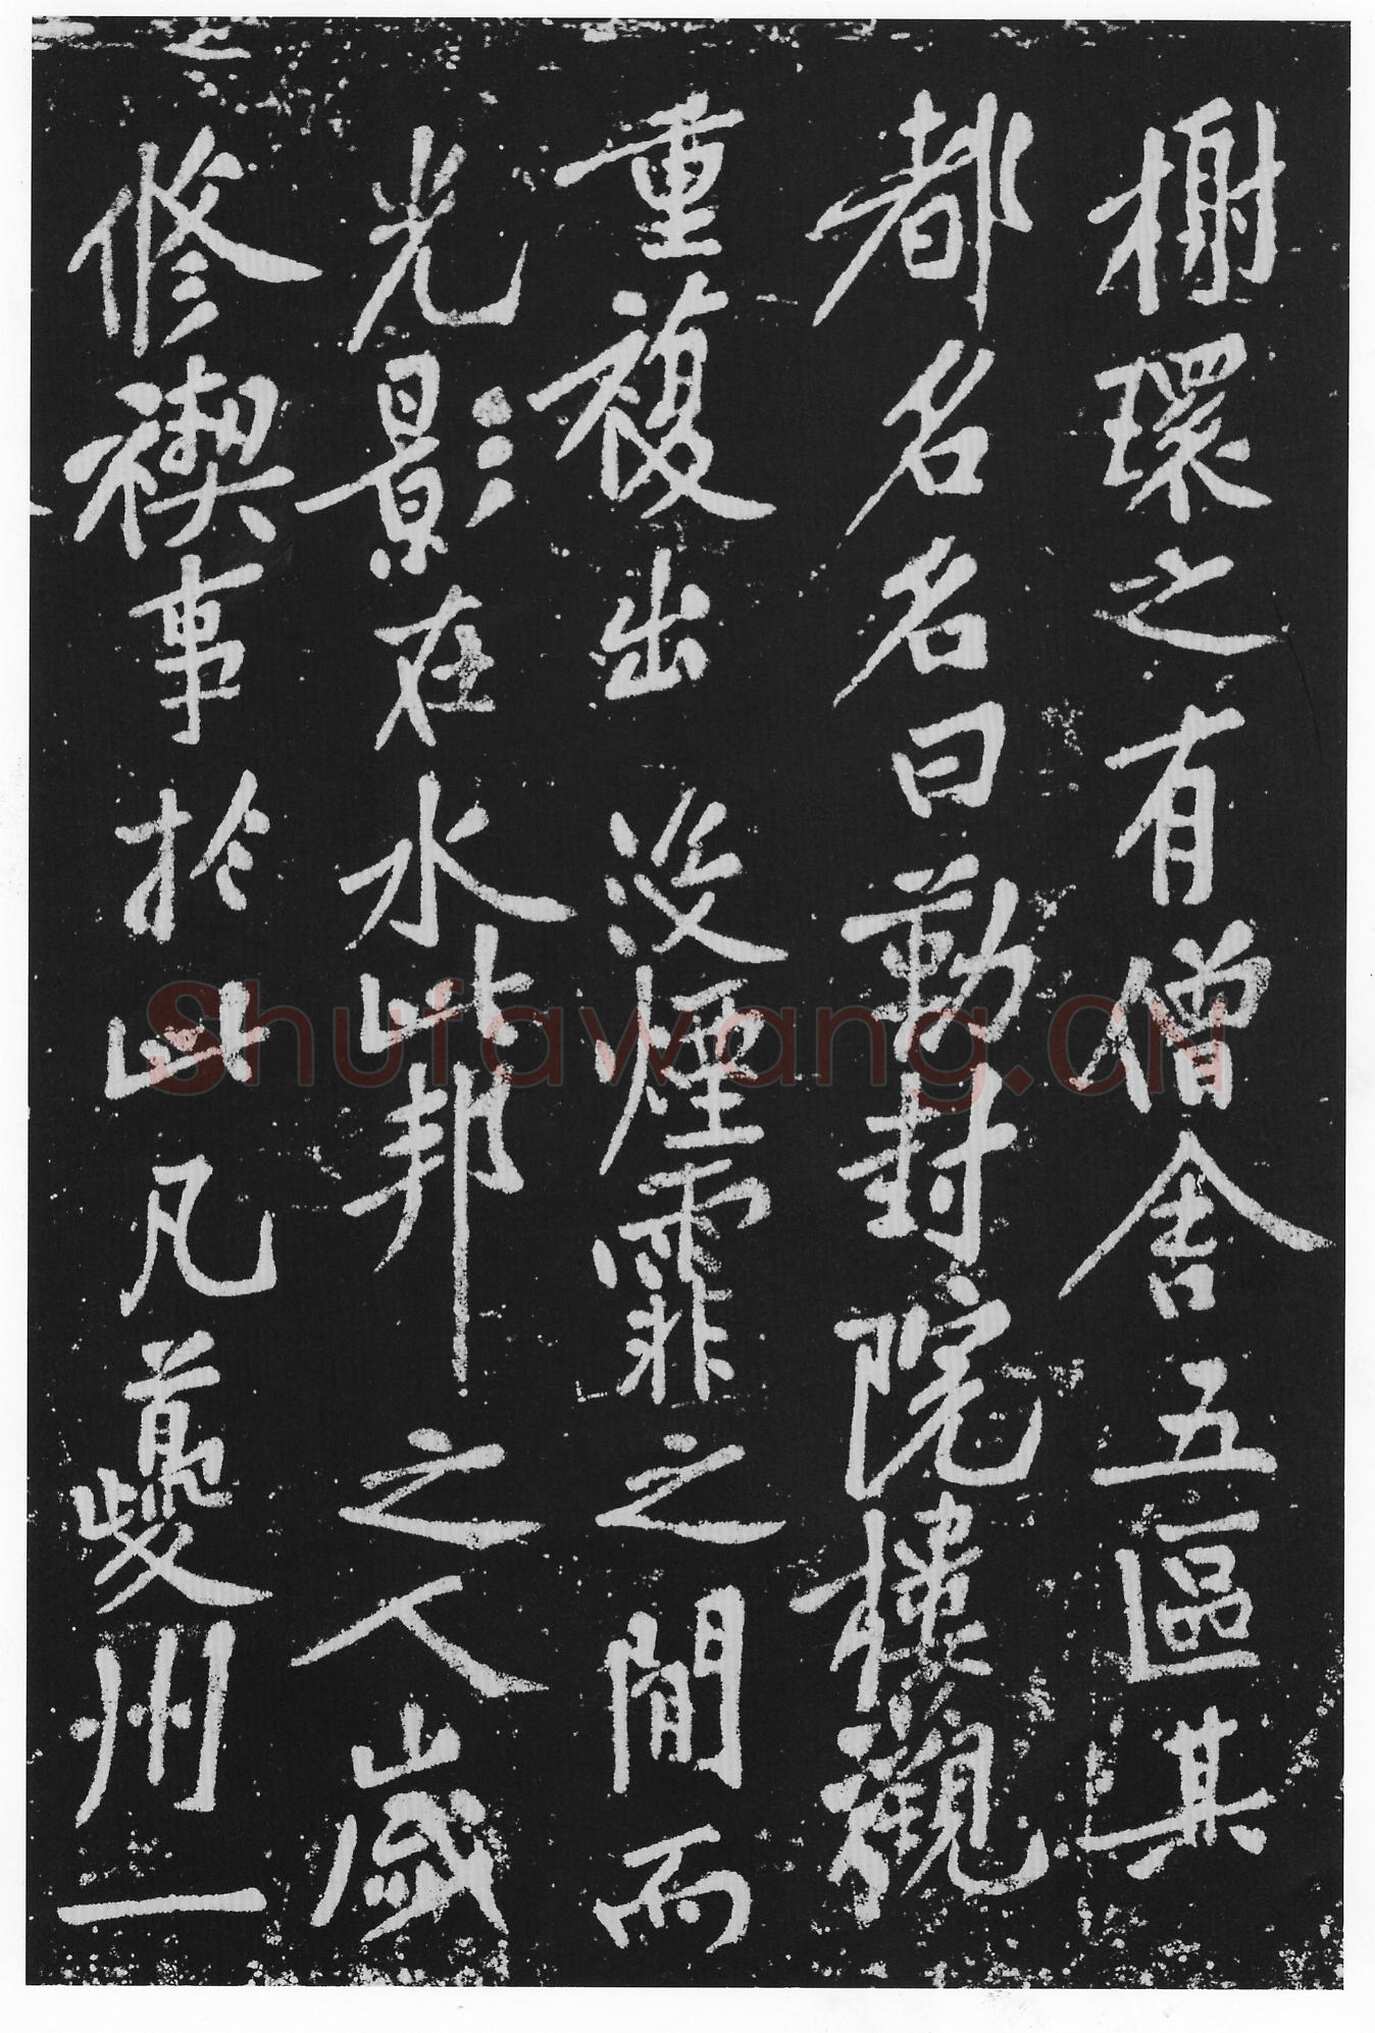 榭環之有僧舍五區其
都名名曰勤封院樓觀
重複出没煙霏之間而
光影在水此邦之人歲
修禊事於此凡夔州一
Shufawang.CN